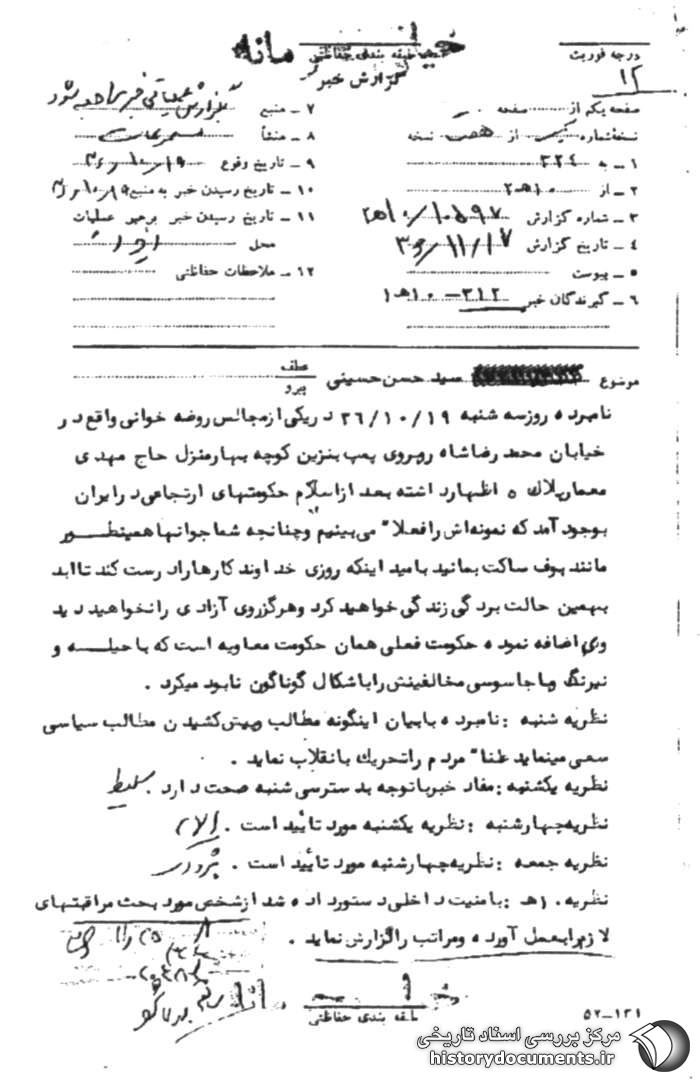 خیلی محرمانه
طبقه بندی حفاظتی
گزارش خبر
درجه فوریت
صفحه یکم از صفحه
نسخه شماره یک از هفت نسخه
۱ ـ به ۳۳۴
۲ ـ از ۱۰ هـ ۲
۳ ـ شماره گزارش ۱۰۵۹۷ / ۱۰ هـ ۲
۴ ـ تاریخ گزارش ۳۶/۱۱/۱۷
۵ ـ پیوست
۶ ـ گیرندگان خبر ۳۱۲ـ ۱۰ هـ ۱
۷ ـ منبع بگزارش عملیاتی خبر مراجعه شود
۸ ـ منشأ
۹ ـ تاریخ وقوع ۳۶/۱۰/۱۹
۱۰ ـ تاریخ رسیدن خبر به منبع ۳۶/۱۰/۱۹
۱۱ ـ تاریخ رسیدن خبر برهبر عملیات
محل
۱۲ ـ ملاحظات حفاظتی
موضوع سید حسن حسینی عطف
پیرو
نامبرده روزسه شنبه ۳۶/۱۰/۱۹ دریکی ازمجالس روضه خوانی واقع در
خیابان محمد رضاشاه روبروی پمپ بنزین کوچه بهارمنزل حاج مهدی
معمارپلاک ۵ اظهارداشته بعد ازاسلام حکومتهای ارتجاعی درایران
بوجود آمد که نمونه‌اش رافعلا" می‌بینیم وچنانچه شماجوانهاهمینطور
مانند بوف ساکت بمانید بامید اینکه روزی خداوند کارهارادرست کند تاابد
بهمین حالت بردگی زندگی خواهید کرد وهرگزروی آزادی رانخواهید دید
وی اضافه نموده حکومت فعلی همان حکومت معاویه است که باحیلــه و
نیرنگ وباجاسوسی مخالفینش راباشکال گوناگون نابود میکرد .
نظریه شنبه : نامبرده بابیان اینگونه مطالب وپیش کشیدن مطالب سیاسی
سعی مینماید علنا" مردم راتحریك بانقلاب نماید .
نظریه یکشنبه : مفاد خبرباتوجه بدسترسی شنبه صحت دارد . سلیط
نظریه چهارشنبه : نظریه یکشنبه مورد تائید است .
نظریه جمعه : نظریه چهارشنبه مورد تائید است .
نظریه ۱۰ هـ : بامنیت داخلی دستورداده شد ازشخص مورد بحث مراقبتهای
لازم رابعمل آورده ومراتب راگزارش نماید .
خیلی محرمانه
طبقه بندی حفاظتی
۵۲ــ۱۳۱
مرکز بررسی اسناد تاریخی
historydocuments.ir